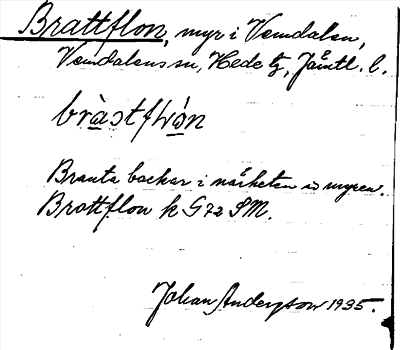 Brattflon, myr i Vemdalen,
Vemdalens sn, Hede tg, Jämtl. l.
bràstflón
Branta backar i närheten av myren.
Brattflon k G72 SM.
Johan Anderson 1935.